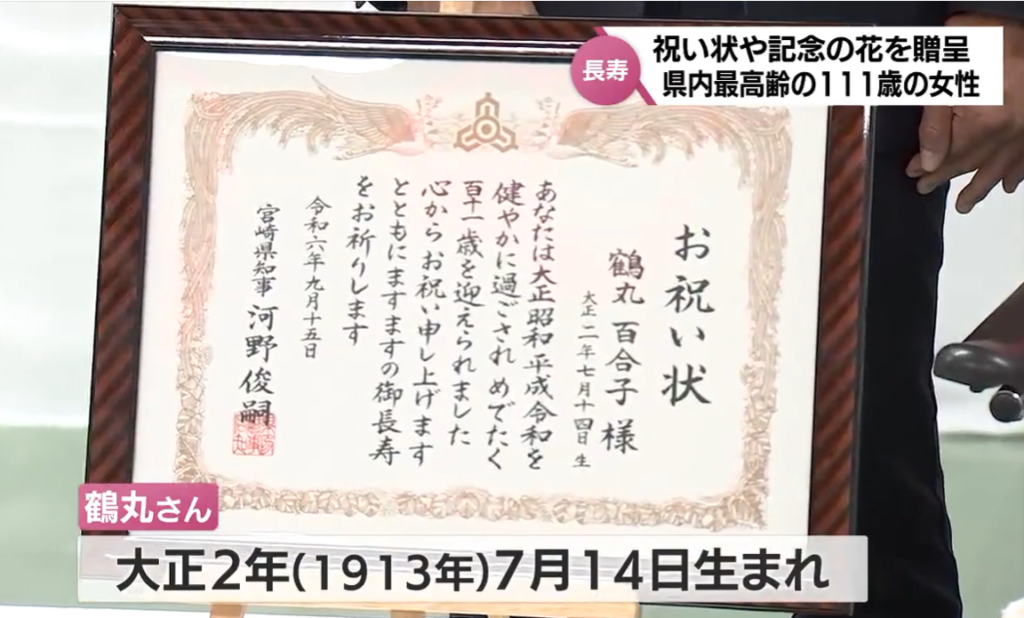 長寿
祝い状や記念の花を贈呈
県内最高齢の111歳の女性
お祝い状
鶴丸 百合子 様
大正二年七月十四日生
あなたは大正昭和平成令和を
健やかに過ごされ めでたく
百十一歳を迎えられました
心からお祝い申し上げます
とともにますますの御長寿
をお祈りします
令和六年九月十五日
宮崎県知事 河野 俊嗣
鶴丸さん
大正2年(1913年)7月14日生まれ